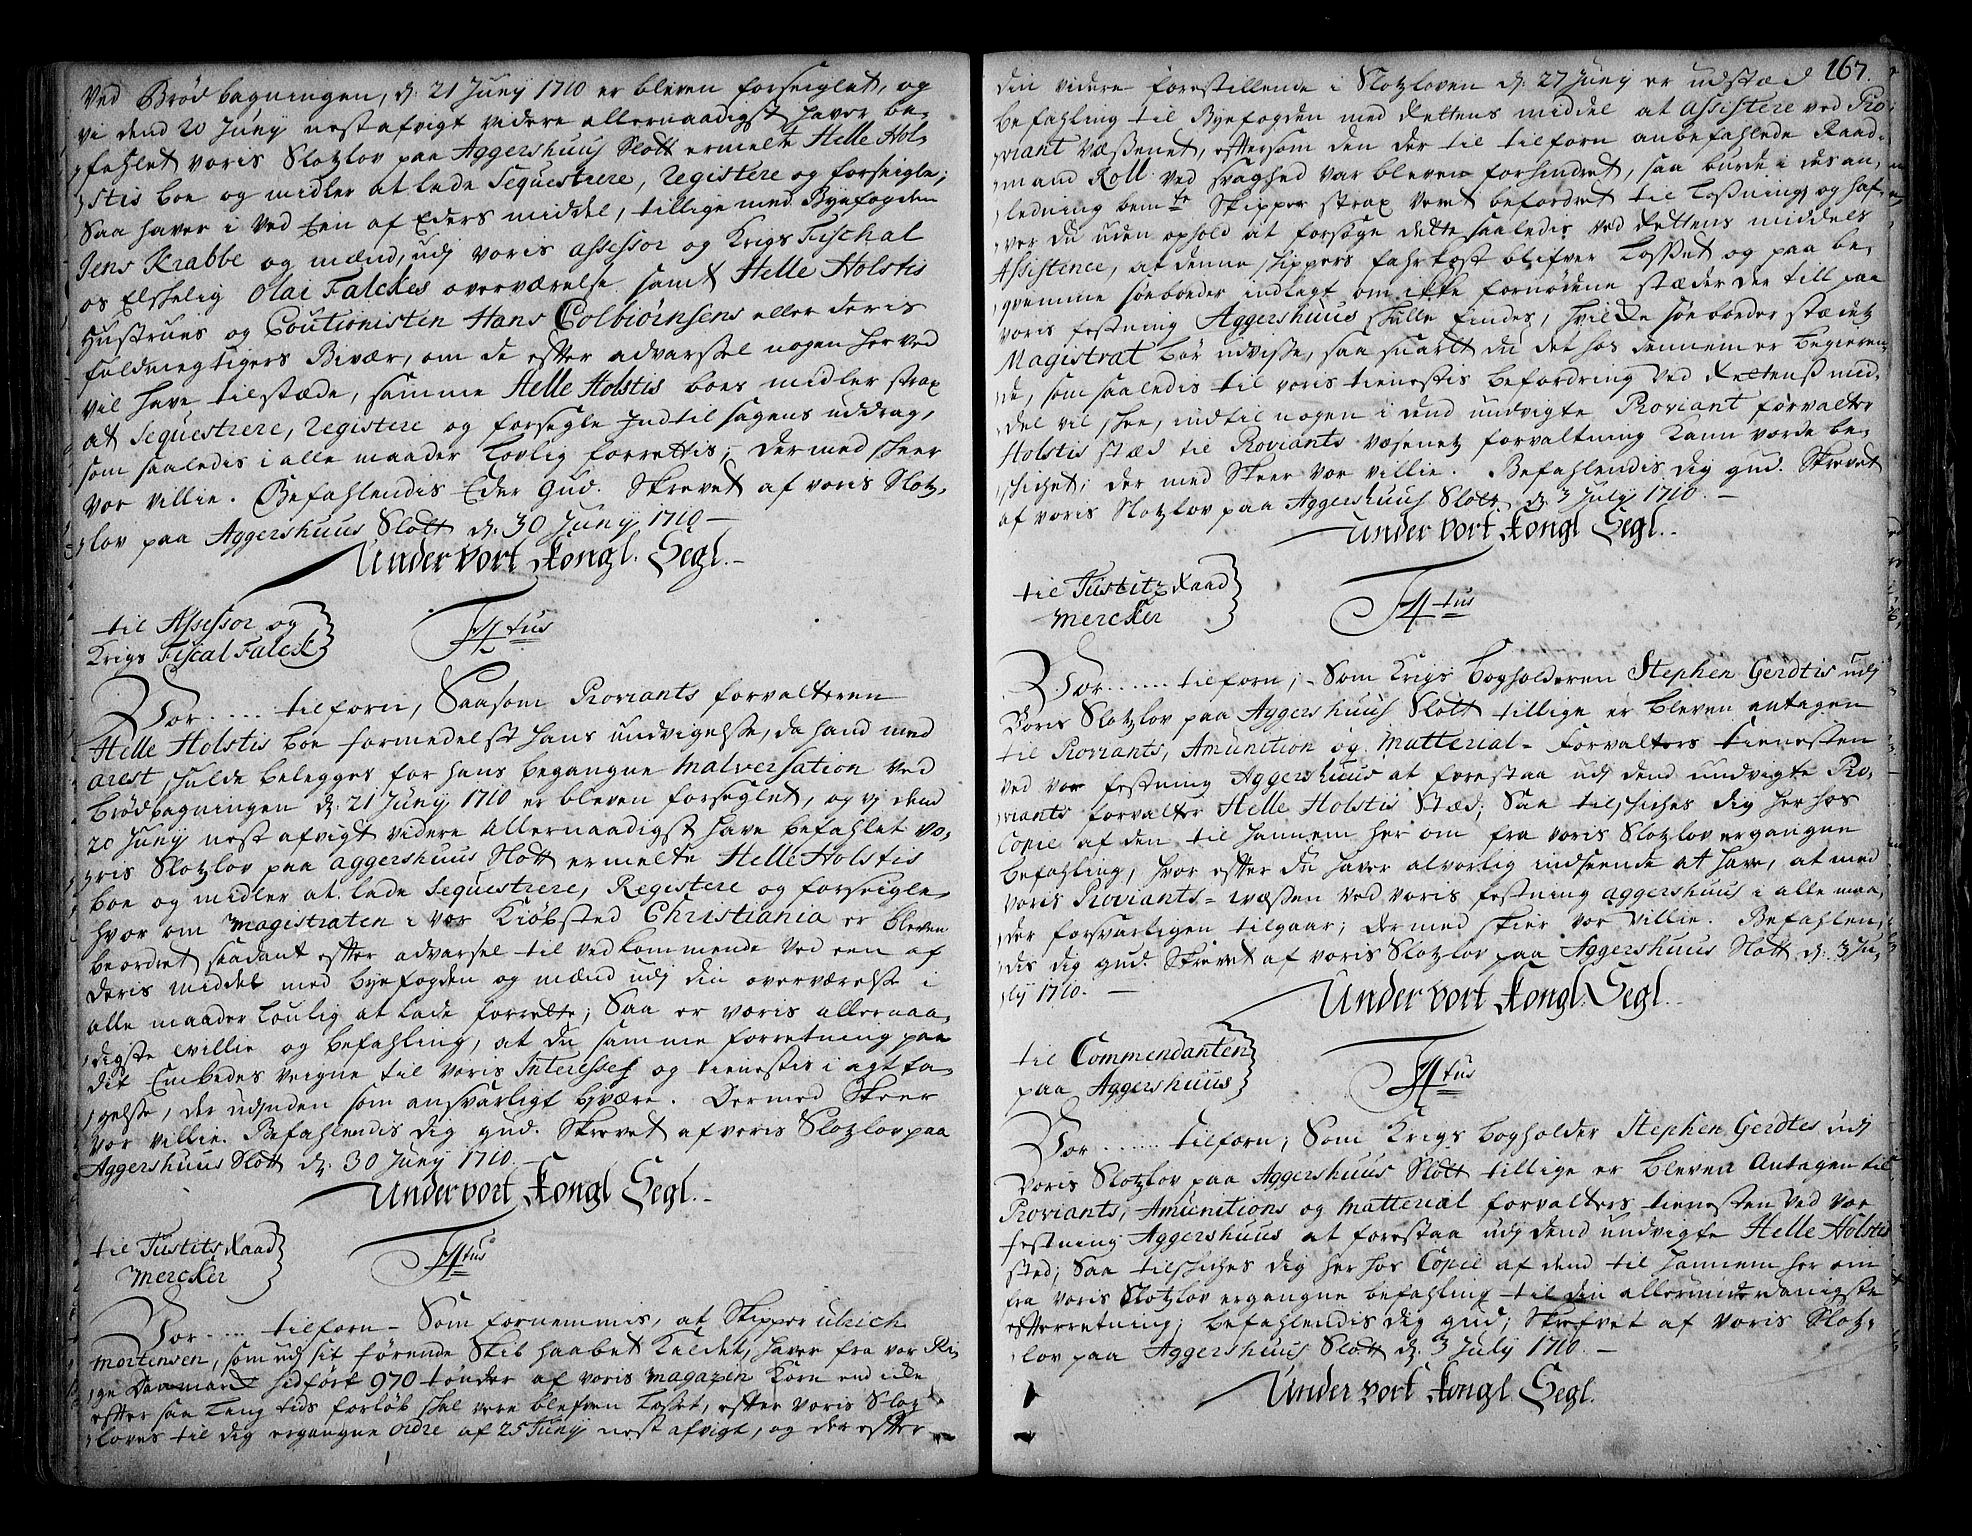 Ved Brødbagningen, d: 21 Junij 1710 er bleven forseiglet, og
vi dend 20 Junij nest afvigt videre allernaadigst haver be-
fahlet voris Slotzlov paa Aggershuus Slott ermelte Helle Hol-
stis boe og midler at lade Sequestrere, Registere og forseigle;
Saa haver i ved Een af Eders middel, tillige med Byefogden
Jens Krabbe og mænd, udj voris Assessor og Krigs Fischal
os Elskelig Olai Falckes overværelse samt Helle Holstis
Hustrues og Coutionisten Hans Colbiørnsens eller deris
fuldmegtigers Bivær, om de efter advarssel nogen her ved
vil have tilstæde, samme Helle Holstis boes midler strax
at Sequestrere, Registere og forsegle Indtil sagens uddrag,
som saaledis i alle maader Lovlig forrettis; Dermed skeer
Vor villie. Befahlendis Eder Gud. Skrevet af voris Slotz-
lov paa Aggershuus Slott d: 30 Junij 1710 —
Under vort Kongl. Segl. -
til Assessor og
Krigs Fiscal Falck
F4tus
Vor ..... tilforn, Saasom Proviants forvalteren
Helle Holstis boe formedelst hans undvigelsse, da hand med
arest skulde belegges for hans begangne Malversation ved
Brødbagningen d: 21 Junij 1710 er bleven forseglet, og vj dend
20 Junij nest afvigt videre Allernaadigst have befahlet vo-
ris Slotzlov paa Aggershuus Slott ermelte Helle Holstis
boe og midler at lade Sequestrere, Registere og forseigle,
hvor om Magistraten i vor Kiøbsted Christiania er bleven
beordret saadant efter advarsel til vedkommende ved een af
deris middel med byefogden og mænd udj din overværelse i
alle maader Loulig at lade forrette; Saa er voris allernaa-
digste villie og befahling, at du samme forretning paa
dit Embedes veigne til voris Interesses og tienestis i agtta-
gelsse, der udjnden som ansvarligt bjvære. Dermed Skeer
Vor villie. Befahlendis dig gud. Skrevet af voris Slotzlov paa
Aggershuus Slott d: 30 Junij 1710. —
Under vort Kongl Segl. -
til Justits Raad
Mercker
F4tus
Vor ..... tilforn - Som fornemmis, at Skipper Ulrich
Mortensen, som udj sit førende Skib haabet Kaldet, haver fra vor Ri-
ge Danmark hidført 970 tønder af voris magazin Korn end icke
efter saa Lang tids forløb skal vere blefven Losset, efter voris Slotz-
loves til dig ergangne ordre af 25 Junij nest afvigt, og der efter
167.
din videre forestillende i Slotzloven d: 27 Junij er udstæd
befahling til Byefogden med Rettens middel at assistere ved Pro-
viant Væssenet, eftersom den der til tilforn anbefahlede Raad-
mand Roll ved svaghed var bleven forhindret, saa burde i des an-
ledning bem:te Skipper strax veret befordret til Losning, og haf-
ver du uden ophold at forsøge dette saaledis ved Rettens middels
Assistence, at denne skippers fahrkost blifver Losset og paa be-
qvemme søeboeder indlagt om ikke fornødene stæder der till paa
voris festning Aggershuus skulle findes, hvilke søe boeder stædets
Magistrat bør udvisse, saa snart du det hos dennem er begieren-
de, som saaledis til voris tienestis befordring ved Rettens mid-
del vil skee, indtil nogen i dend undvigte Proviant forvalter
Holstis stæd til Proviants væsenetz forvaltning kann vorde be-
skichet; der med Skeer vor villie. Befahlendis dig gud. Skrevet
af voris Slotzlov paa Aggershuus Slott d: 3 July 1710. —
Under vort Kongl Segl. -
til Justitz Raad
Mercker
F4tus
Vor ...... tilforn; - Som Krigs bogholderen Stephen Gerdtis udj
Voris Slotzlov paa Aggershuus Slott tillige er bleven antagen
til Proviants, Amunition og Matterial - forvalters tienesten
ved vor festning Aggershuus at forestaa udj dend undvigte Pro-
viants forvalter Helle Holstis Stæd; Saa tilskiches dig her hos
Copie af den til hannem her om fra voris Slotzlov ergangne
befahling, hvor efter du haver alvorlig indseende at have, at med
voris Proviants - wæssen ved voris festning Aggershuus i alle maa-
der forsvarligen tilgaar; der med skier vor villie. Befahlen-
dis dig gud. Skrevet af voris Slotzlov paa Aggershuus Slott d: 3 Ju-
ly 1710. —
Under vort Kongl. Segl. -
til Commendanten
paa Aggershuus
F4tus
Vor ...... tilforn; Som Krigs bogholder Stephen Gerdtes udj
Voris Slotzlov paa Aggershuus Slott tillige er bleven Antagen til
Proviants, Amunitions og Matterial forvalters tienesten ved vor
festning Aggershuus at forestaa udj dend undvigte Helle Holstis
sted; Saa tilskiches dig her hos Copie af dend til hannem her om
fra voris Slotzlov ergangne befahling til din allerunderdanigste
efterretning; befahlendis dig gud; Skrefvet af voris Slotz-
lov paa Aggershuus Slott d: 3 July 1710. —
Under vort Kongl Segl.